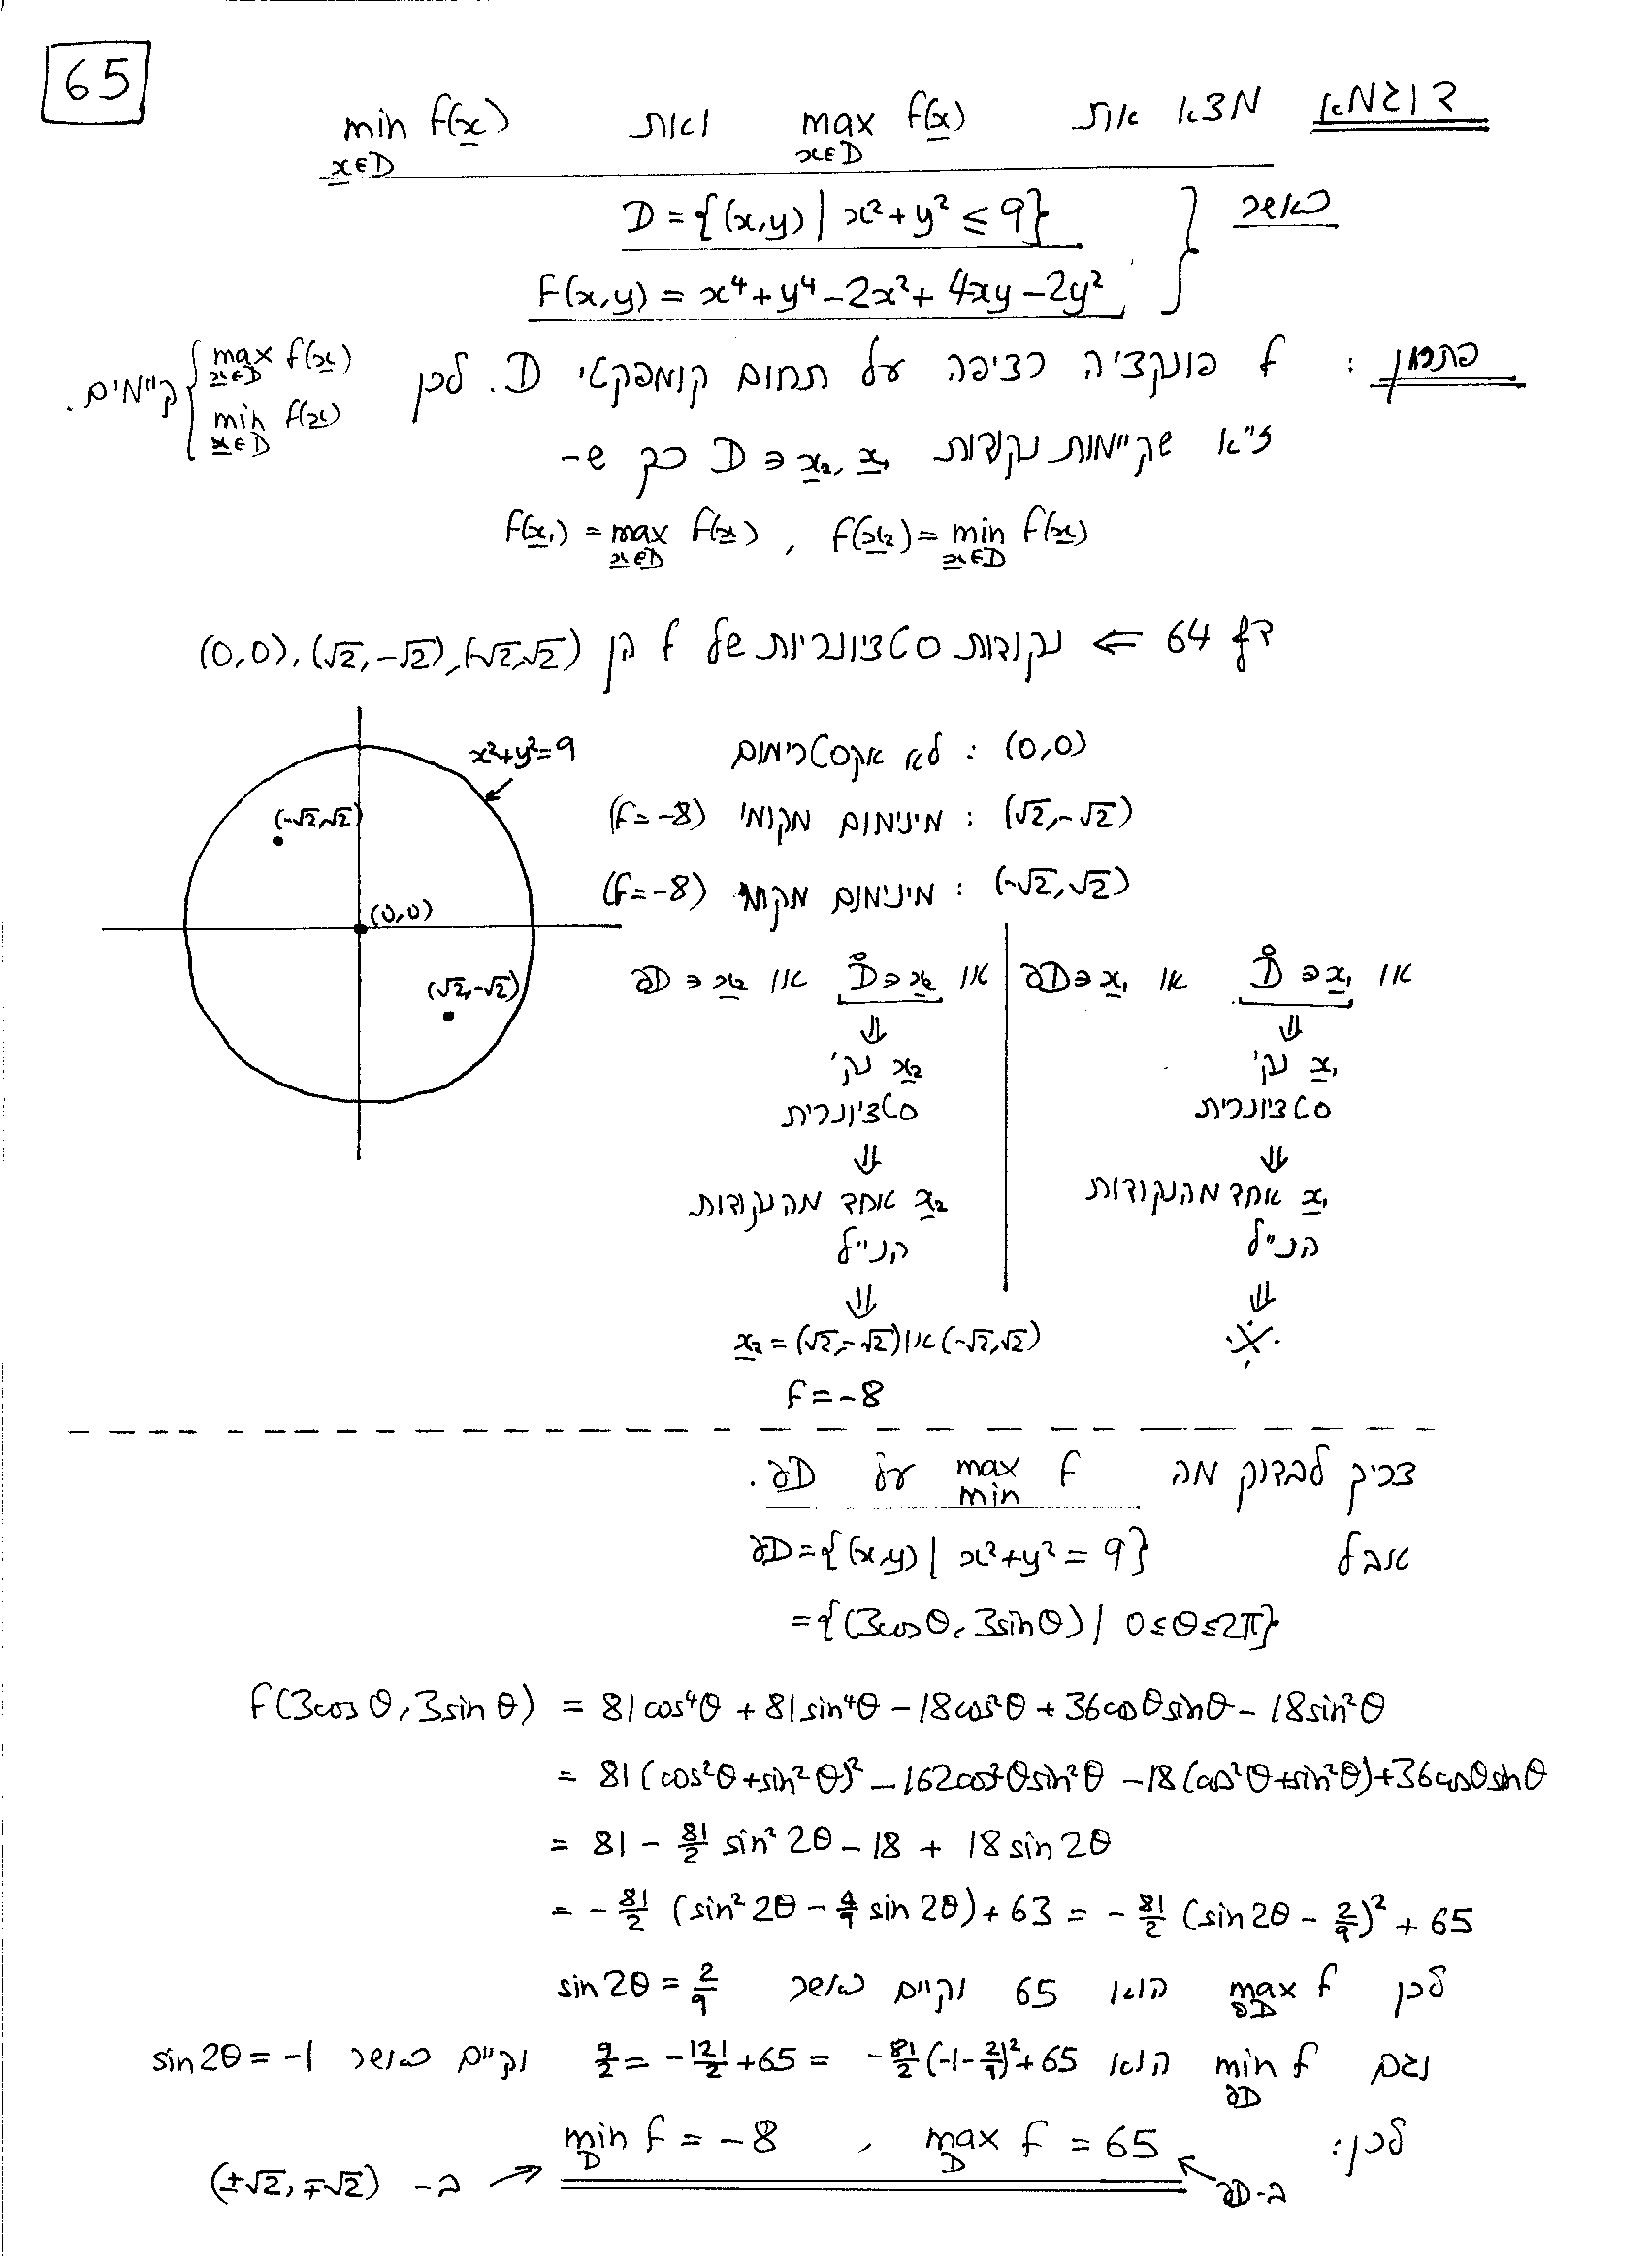 65
דוגמא מצא את max f(x) ואת min f(x)
x∈D x∈D
כאשר D = {(x,y) | x² + y² ≤ 9}
f(x,y) = x⁴ + y⁴ - 2x² + 4xy - 2y²
פתרון: f פונקציה רציפה על תחום קומפקטי D. לכן { max f(x) x∈D min f(x) x∈D קיימים.
ז"א שקיימות נקודות x₁, x₂ ∈ D כך ש-
f(x₁) = max f(x) , f(x₂) = min f(x)
x∈D x∈D
דף 64 ⇐ נקודות סטציונריות של f הן (0,0), (√2,-√2), (-√2,√2)
x²+y²=9
(-√2,√2)
(0,0)
(√2,-√2)
(0,0) : לא אקסטרימום
(√2,-√2) : מינימום מקומי (f=-8)
(-√2,√2) : מינימום מקומי (f=-8)
או x₁ ∈ D̊ או x₁ ∈ ∂D
⇓
x₁ נק'
סטציונרית
⇓
x₁ אחד מהנקודות
הנ"ל
⇓
※
או x₂ ∈ D̊ או x₂ ∈ ∂D
⇓
x₂ נק'
סטציונרית
⇓
x₂ אחד מהנקודות
הנ"ל
⇓
x₂ = (√2,-√2) או (-√2,√2)
f = -8
צריך לבדוק מה max min f על ∂D.
אבל ∂D = {(x,y) | x² + y² = 9}
= {(3cosθ, 3sinθ) | 0 ≤ θ ≤ 2π}
f(3cosθ, 3sinθ) = 81cos⁴θ + 81sin⁴θ - 18cos²θ + 36cosθsinθ - 18sin²θ
= 81(cos²θ + sin²θ)² - 162cos²θsin²θ - 18(cos²θ + sin²θ) + 36cosθsinθ
= 81 - 81/2 sin²2θ - 18 + 18sin2θ
= - 81/2 (sin²2θ - 4/9 sin2θ) + 63 = - 81/2 (sin2θ - 2/9)² + 65
לכן max f ∂D הוא 65 וקיים כאשר sin2θ = 2/9
וגם min f ∂D הוא -81/2 (-1-2/9)² + 65 = -121/2 + 65 = 9/2 וקיים כאשר sin2θ = -1
לכן: min f = -8 , max f = 65
D D
ב- (±√2, ∓√2)
ב-∂D